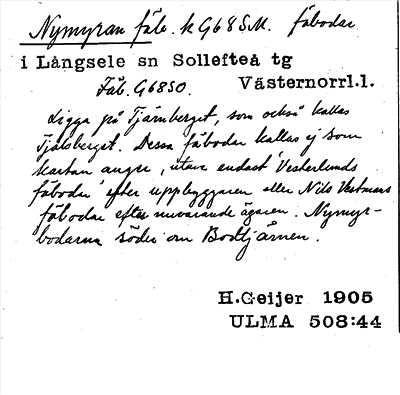 Nymyran fäb. k G68SM. fäbodar
i Långsele sn Sollefteå tg
Fäb. G68SO. Västernorrl.l.
Ligga på Tjärnberget, som också kallas
Tjälsberget. Dessa fäbodar kallas ej som
kartan anger, utan endast Vesterlunds
fäbodar efter uppbyggaren eller Nils Vestmans
fäbodar efter nuvarande ägaren. Nymyr-
bodarna söder om Bodtjärnen.
H.Geijer 1905
ULMA 508:44